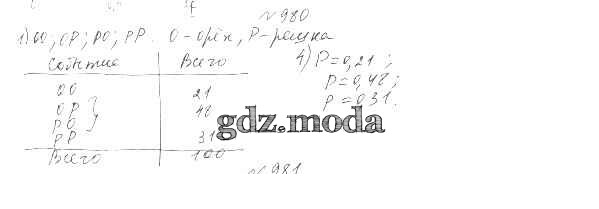 №980
1) ОО; ОР; РО; РР. О-орёл, Р-решка
Событие Всего
ОО 21
ОР } 48
РО }
РР 31
Всего 100
4) Р=0,21;
Р=0,48;
Р=0,31.
gdz.moda
№981